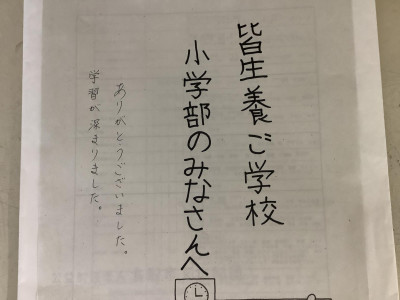 皆生養ご学校
小学部のみなさんへ
ありがとうございました。
学習が深まりました。